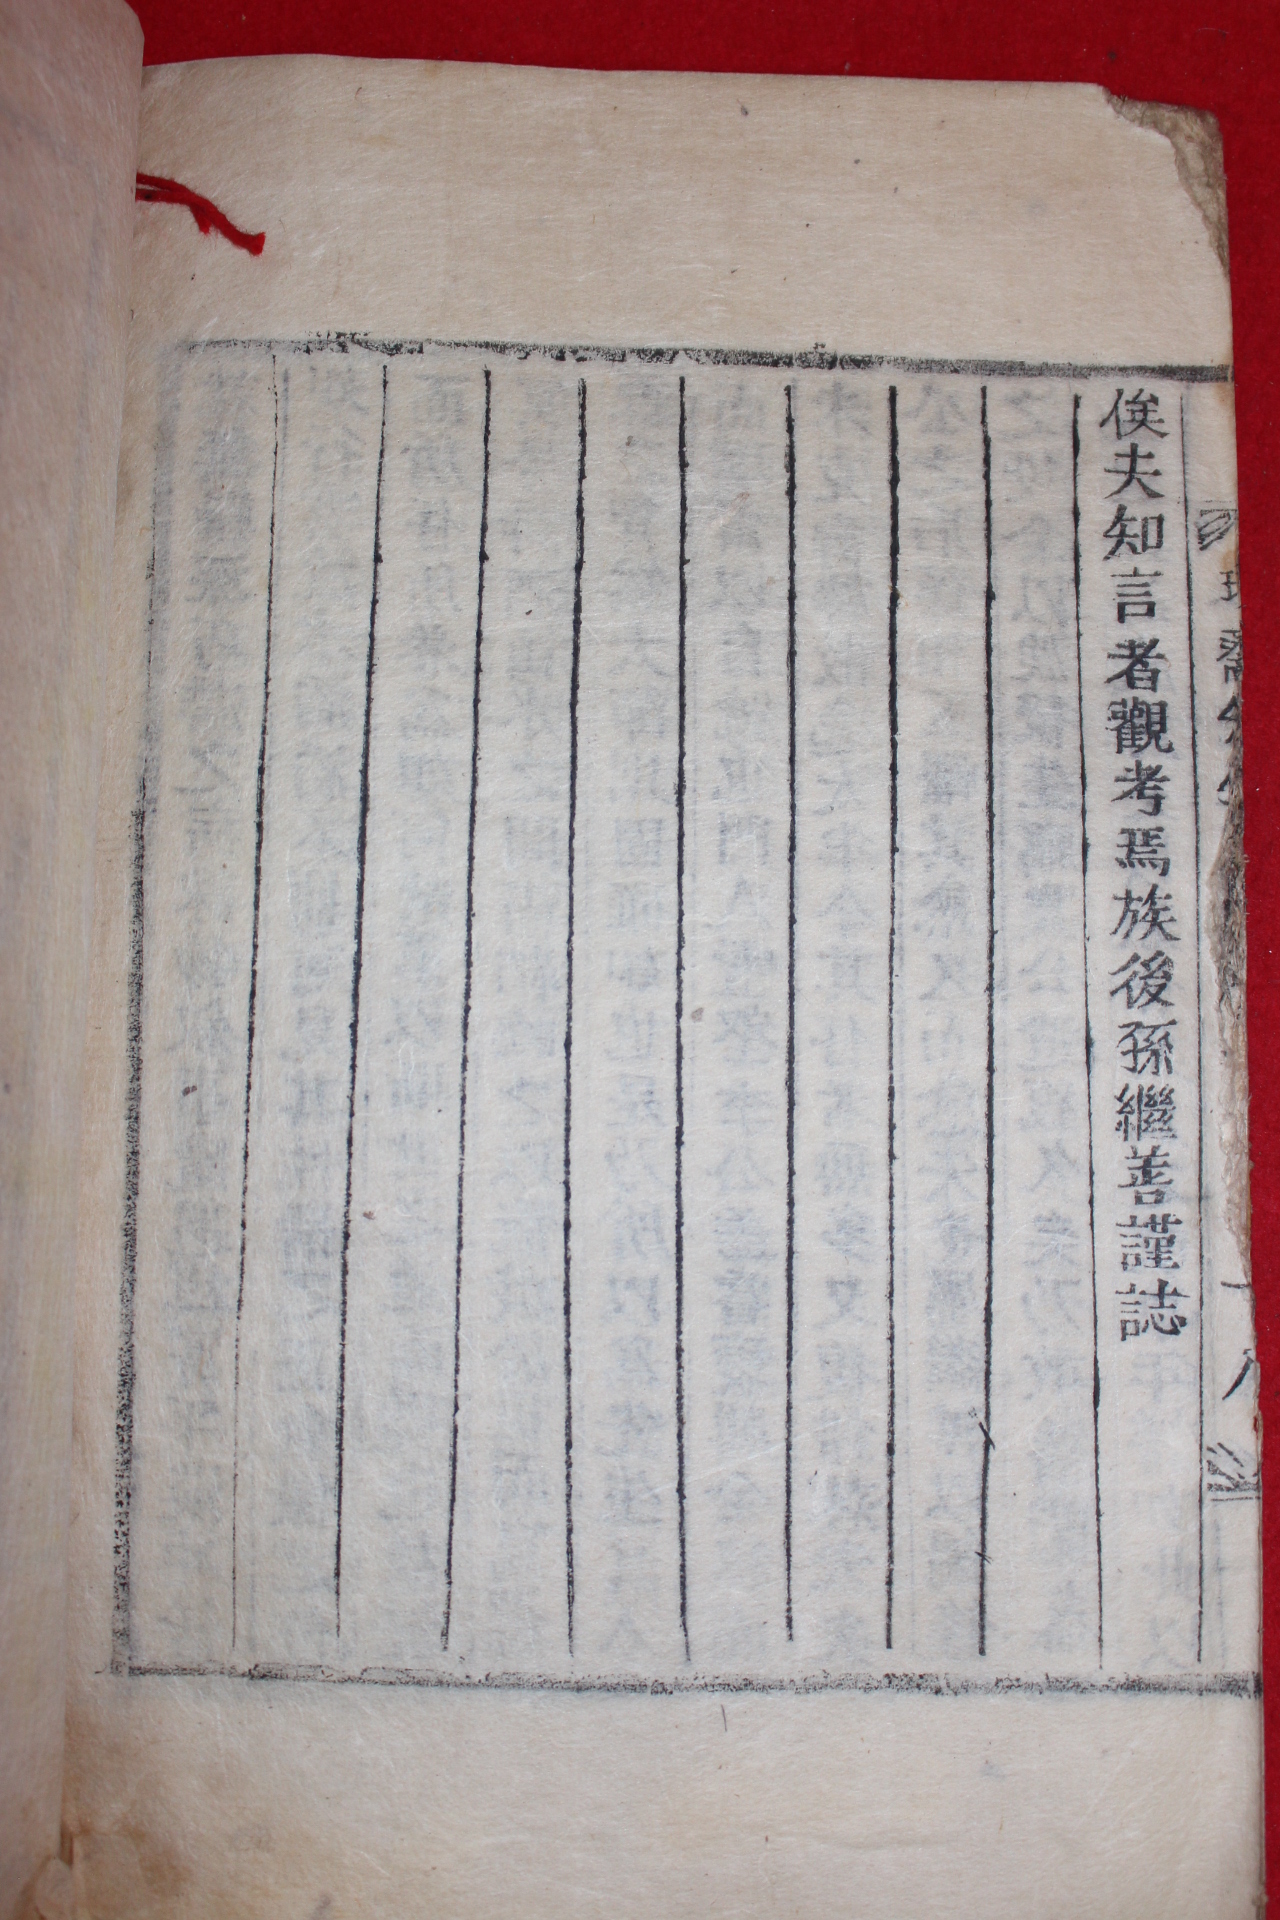 俟夫知言者觀考焉族後孫繼善謹誌